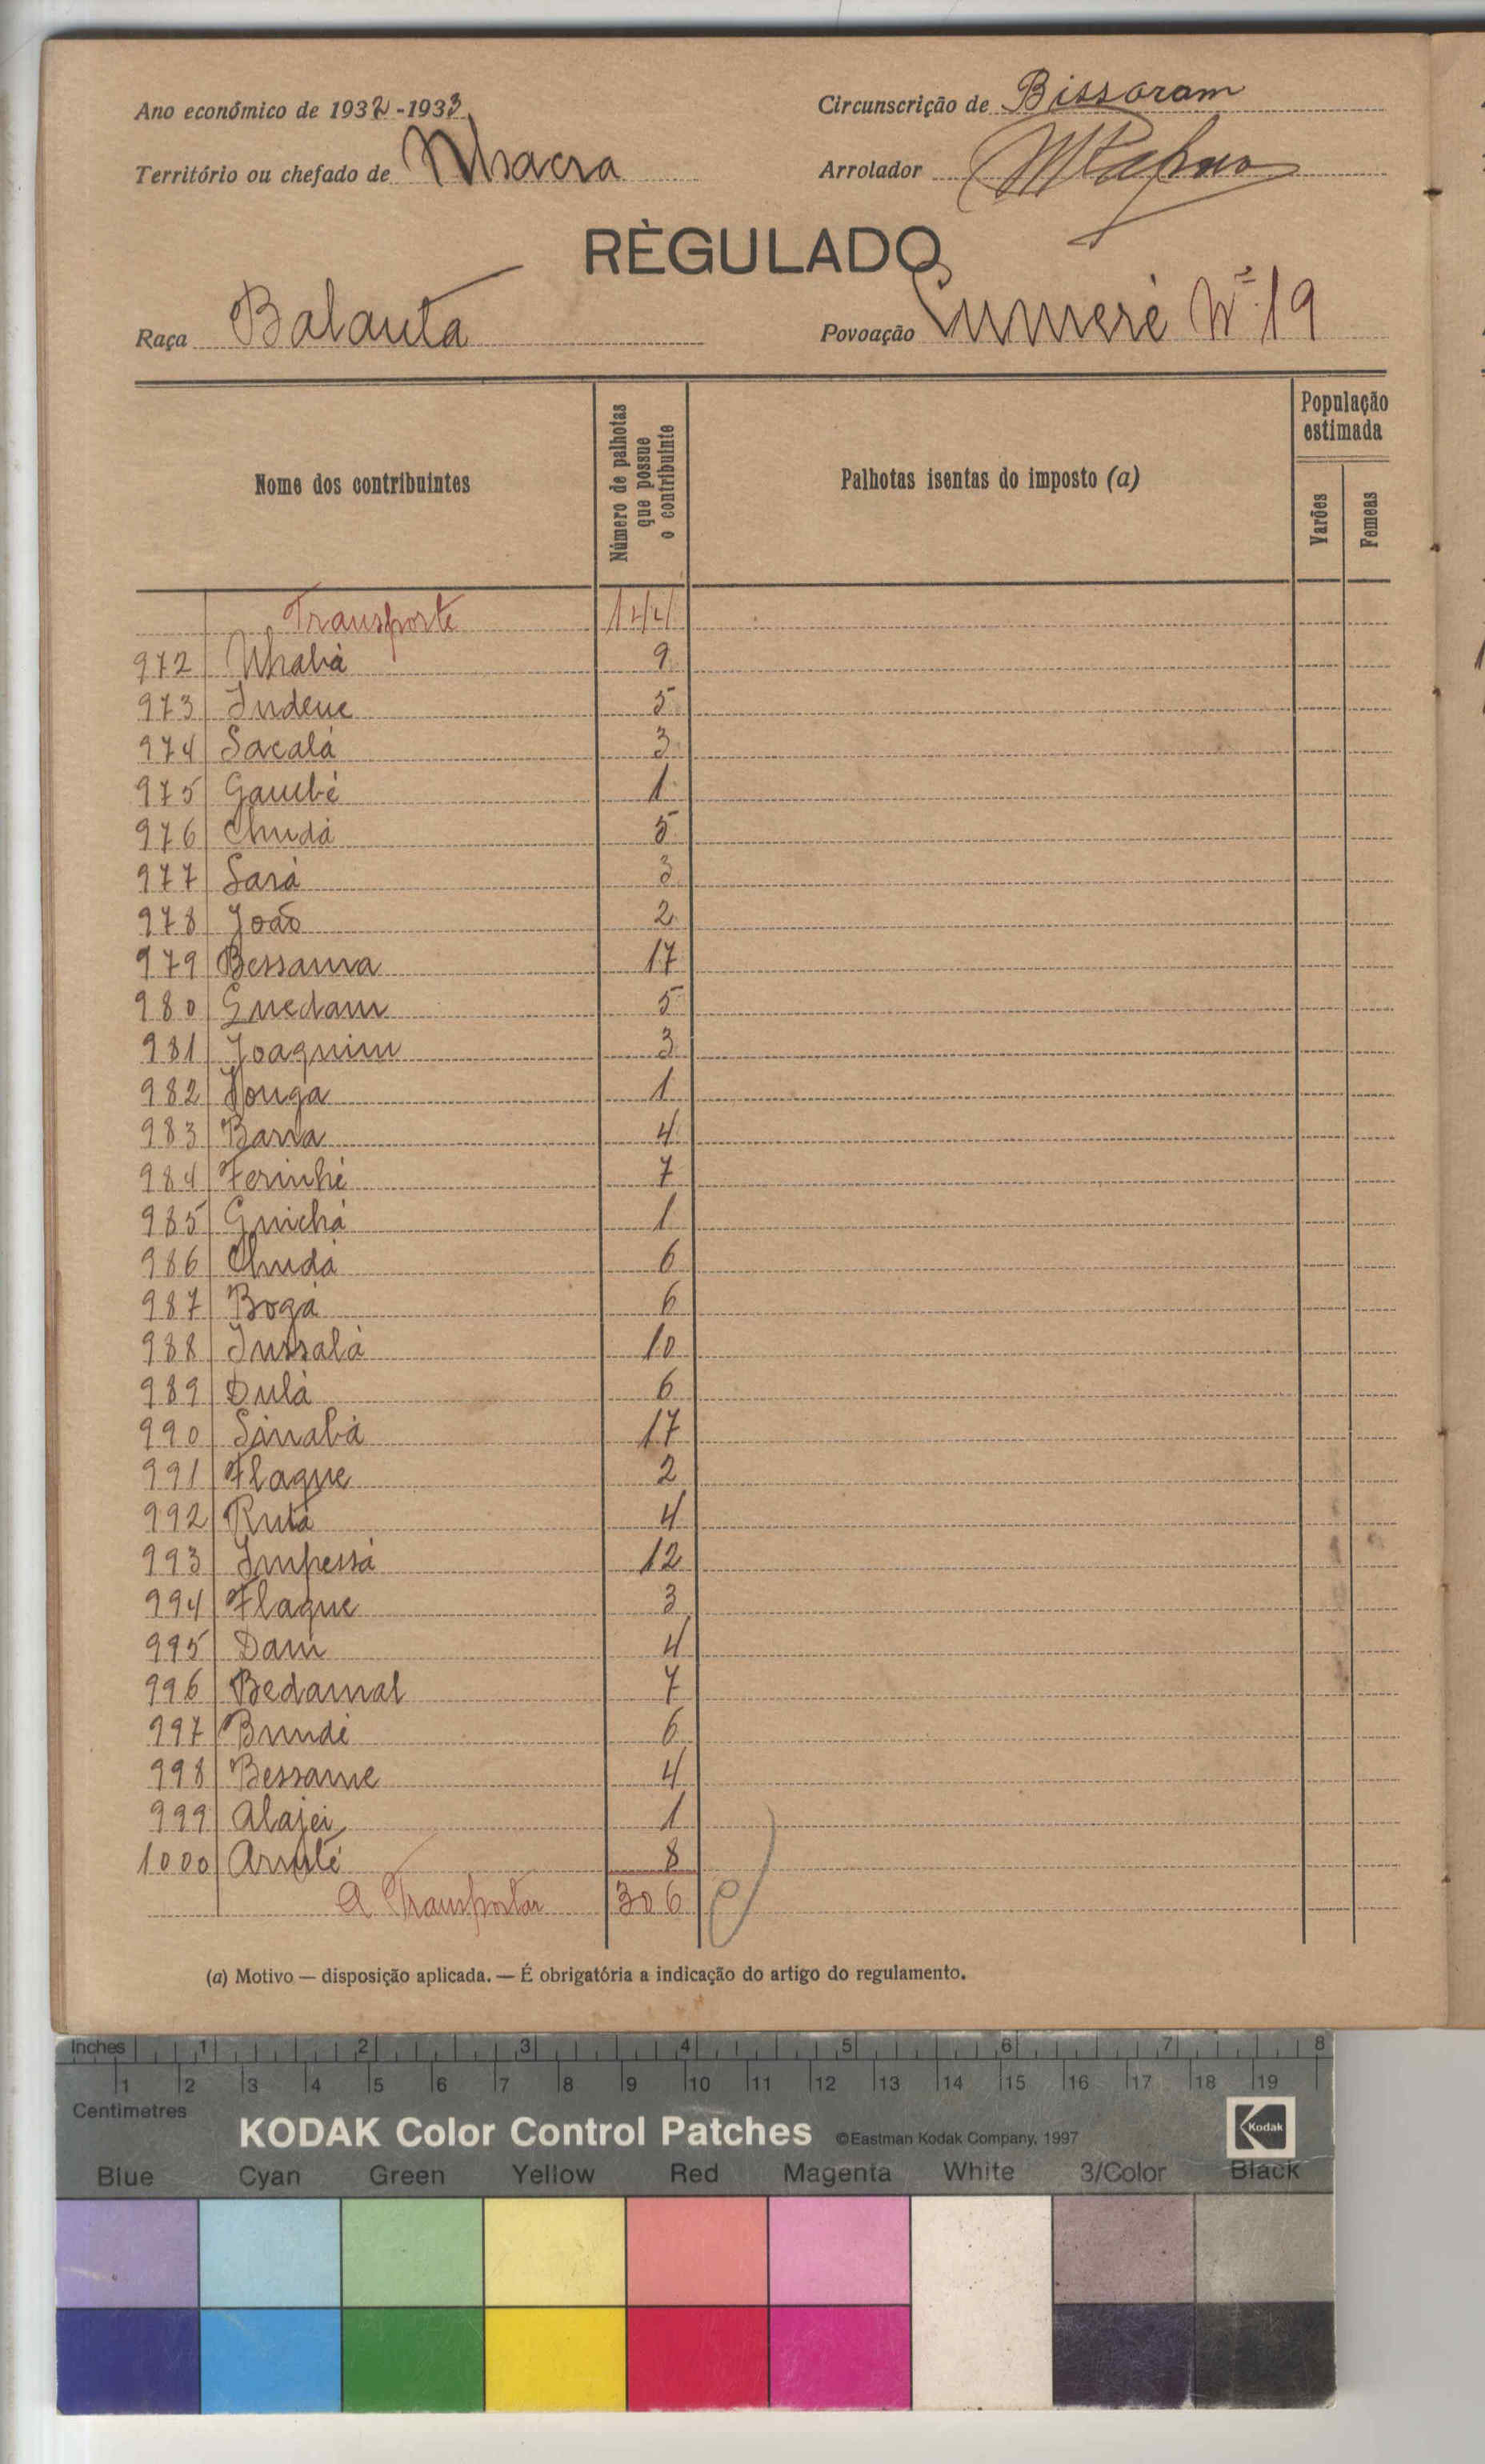 Ano económico de 1932-1933
Circunscrição de Bissoram
Território ou chefado de Nhacra
Arrolador
RÈGULADO
Raça Balanta
Povoação Cumeré Nº 19
Nome dos contribuintes
Número de palhotas que possue o contribuinte
Palhotas isentas do imposto (a)
População estimada
Varões
Femeas
Transporte 144
972 Nhabá 9
973 Indene 5
974 Sacalá 3
975 Gambé 1
976 Chudá 5
977 Sará 3
978 João 2
979 Bessanva 17
980 Guedam 5
981 Joaquim 3
982 1
983 Barra 4
984 Ferinhé 7
985 Guichá 1
986 Chudá 6
987 Bogá 6
988 Jussalá 10
989 Dulá 6
990 Sinabá 17
991 Flaque 2
992 Rutá 4
993 Impessá 12
994 Flaque 3
995 Dam 4
996 Bedamal 7
997 Bundé 6
998 Bessame 4
999 Alajei 1
1000 8
A Transportar 306
(a) Motivo — disposição aplicada. — É obrigatória a indicação do artigo do regulamento.
Inches 1 2 3 4 5 6 7 8
1 2 3 4 5 6 7 8 9 10 11 12 13 14 15 16 17 18 19
Centimetres
KODAK Color Control Patches ©Eastman Kodak Company, 1997 Kodak
Blue Cyan Green Yellow Red Magenta White 3/Color Black